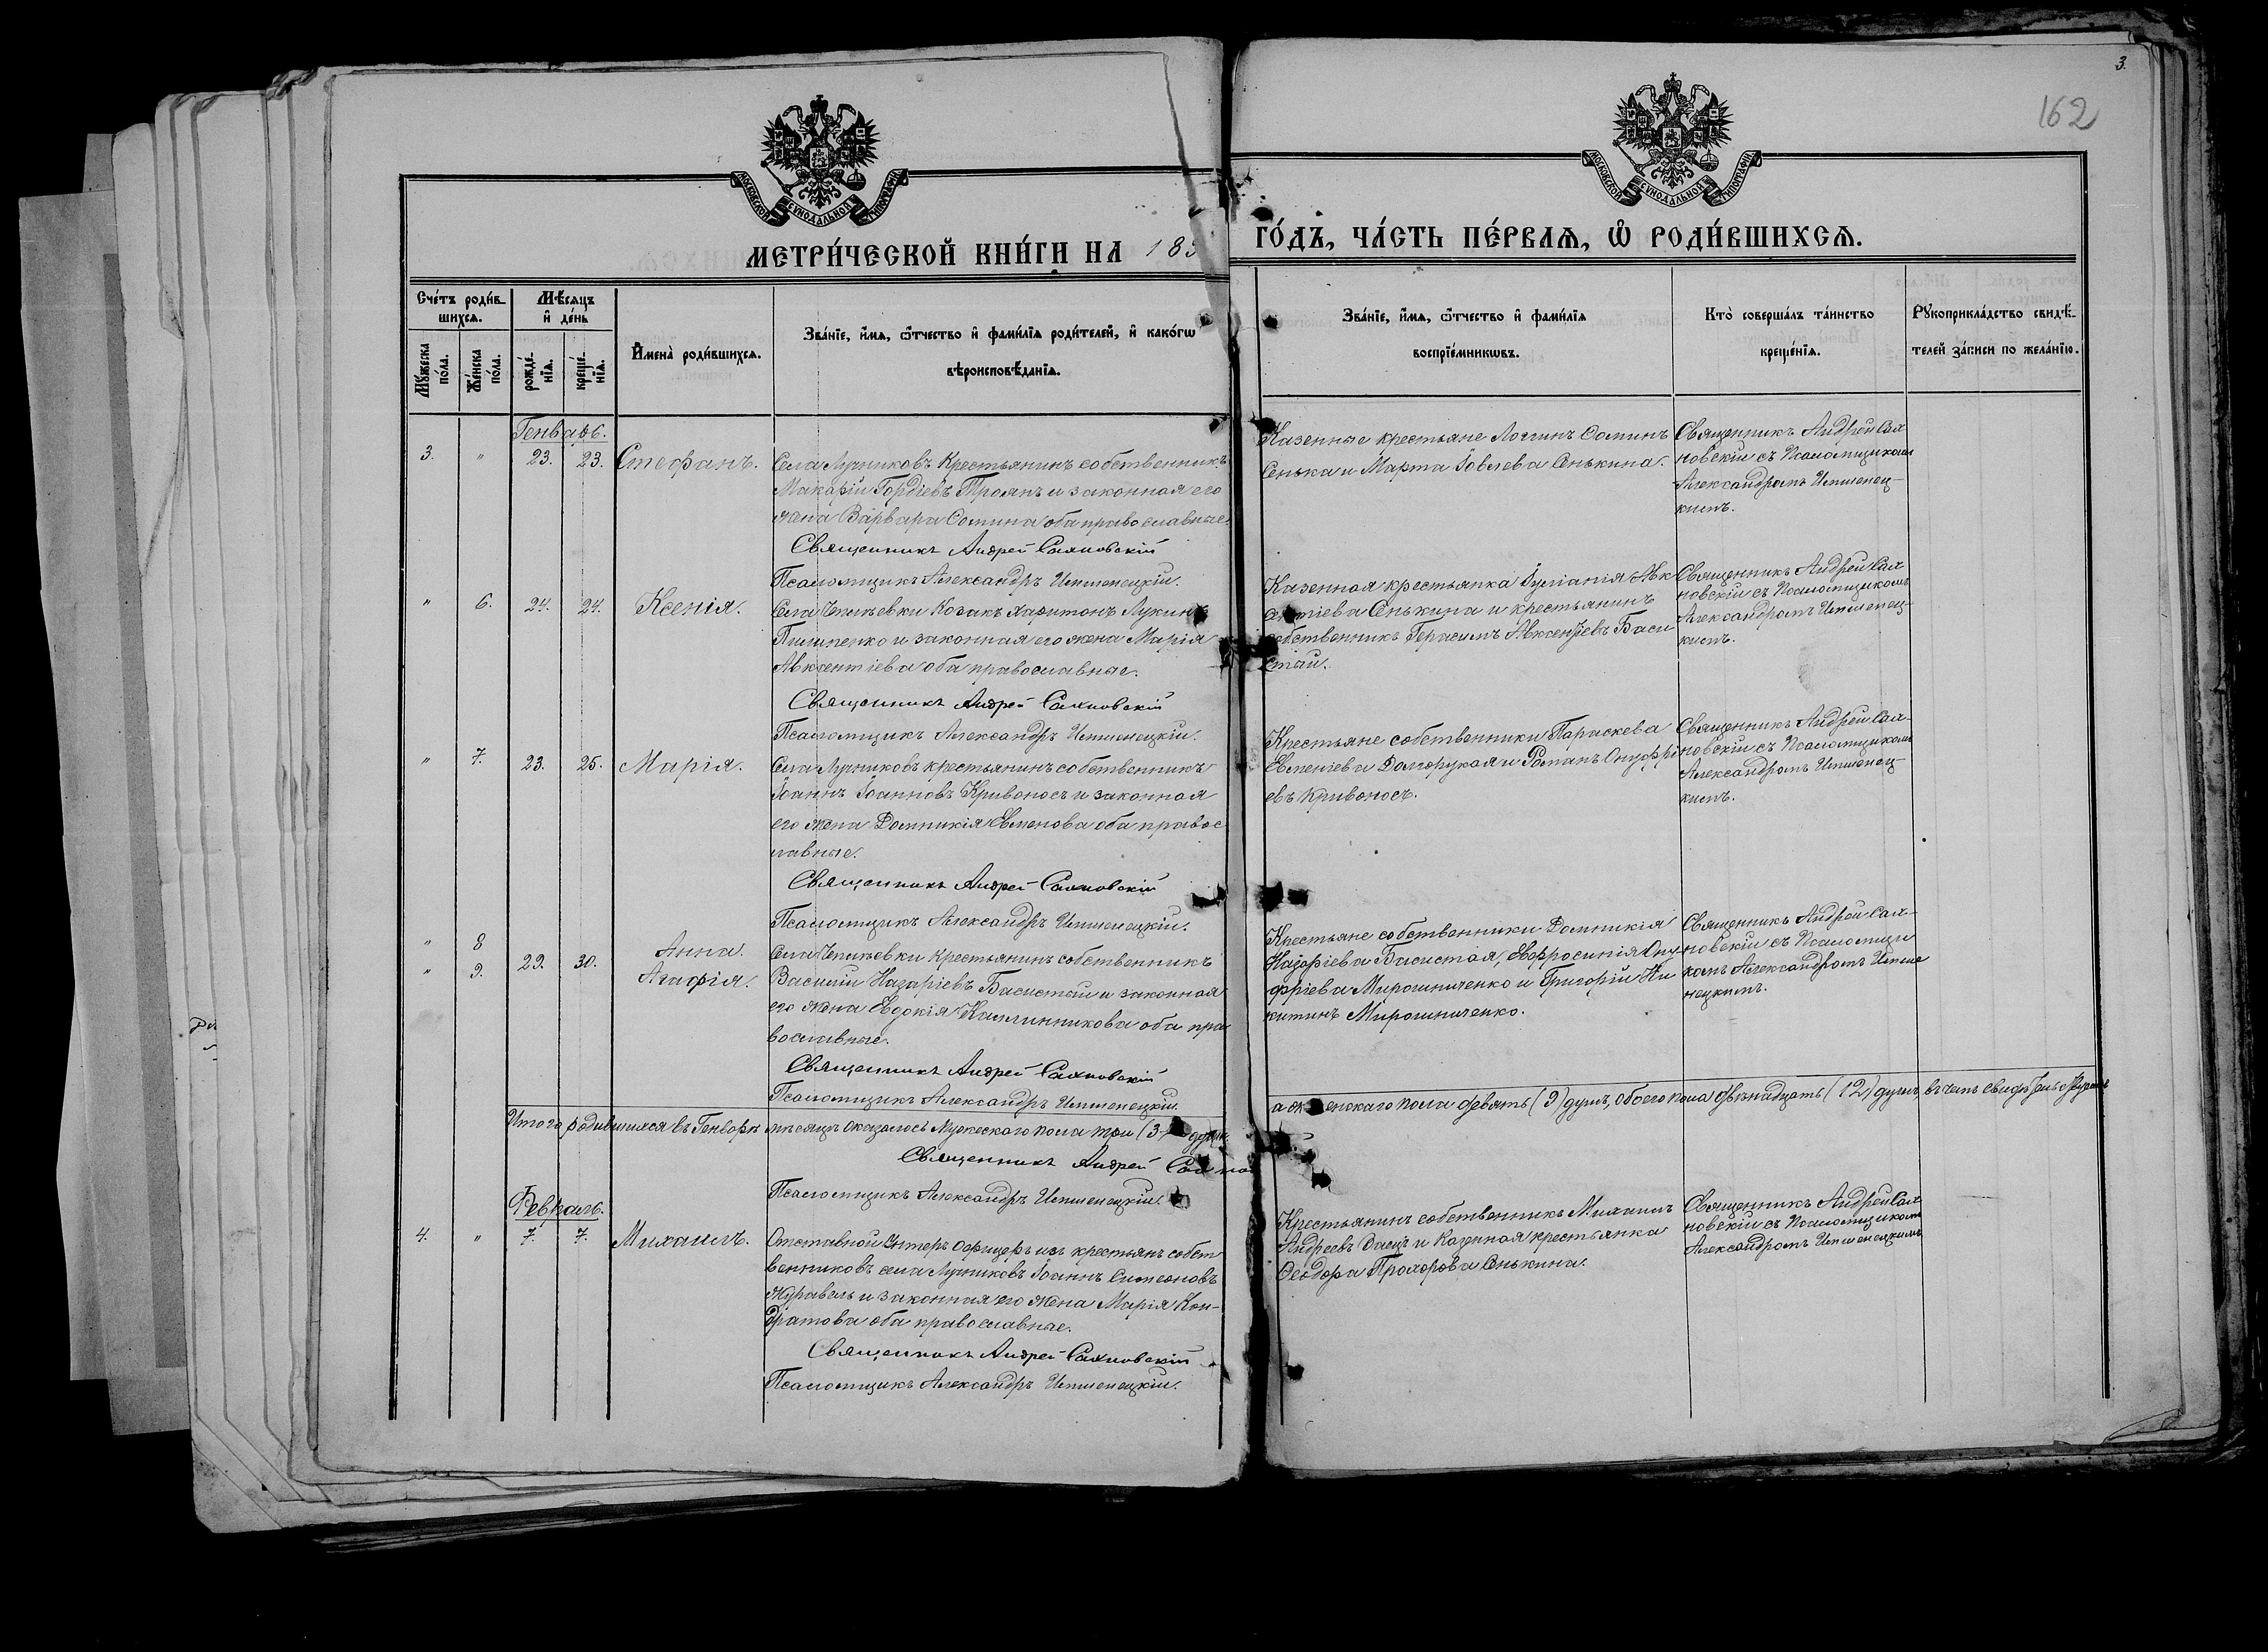 3.
162
МОСКОВСКОЙ СѴНОДАЛЬНОЙ ТИПОГРАФІИ
МОСКОВСКОЙ СѴНОДАЛЬНОЙ ТИПОГРАФІИ
МЕТРИ́ЧЕСКОЙ КНИ́ГИ НА 183
ГО́ДЪ, ЧА́СТЬ ПЕ́РВАѦ, Ѡ РОДИ́ВШИХСѦ.
Сче́тъ роди́в-
шихсѧ.
Мѣ́сѧцъ
и҆ де́нь
Мꙋ́жеска
по́ла.
Же́нска
по́ла.
рожде́-
нїѧ.
креще́-
нїѧ.
И҆мена̀ роди́вшихсѧ.
Зва́нїе, и҆́мѧ, ѻ҆́тчество и҆ фами́лїѧ роди́телей, и҆ како́гѡ
вѣроисповѣ́данїѧ.
Зва́нїе, и҆́мѧ, ѻ҆́тчество и҆ фами́лїѧ
воспрїе́мникѡвъ.
Кто̀ соверша́лъ та́инство
креще́нїѧ.
Рꙋкоприкла́дство свидѣ́-
телей за́писи по жела́нїю.
Генварь.
3. " 23. 23. Стефанъ.
Села Лучниковъ Крестьянинъ собственникъ
Макарій Гордіевъ Троянъ и законная его
жена Варвара Ѳомина оба православные.
Священникъ Андрей Сахновскій
Псаломщикъ Александръ Ипшенецкій.
Казенные крестьяне Логгинъ Ѳоминъ
Сенька и Марта Іовлева Сенькина.
Священникъ Андрей Сах
новскій съ Псаломщикомъ
Александромъ Ипшенец-
кимъ.
" 6. 24. 24. Ксенія.
Села Чепиževки Козакъ Харитонъ Лукинъ
и законная его жена Марія
Авксентіева оба православные.
Священникъ Андрей Сахновскій
Псаломщикъ Александръ Ипшенецкій.
Казенная крестьянка Іуліанія Ав
ентіева Сенькина и крестьянинъ
собственникъ Герасимъ Авксентіевъ Баси
стый.
Священникъ Андрей Сах
новскій съ Псаломщикомъ
Александромъ Ипшенец-
кимъ.
" 7. 23. 25. Марія.
Села Лучниковъ крестьянинъ собственникъ
Іоаннъ Іоанновъ Кривоносъ и законная
его жена Домникія Евменова оба правос
лавные.
Священникъ Андрей Сахновскій
Псаломщикъ Александръ Ипшенецкій.
Крестьяне собственники Параскева
Евменіева Долгорукая и Романъ Онуфрі
евъ Кривоносъ.
Священникъ Андрей Сах-
новскій съ Псаломщикомъ
Александромъ Ипшенец-
кимъ.
" 8 Анна.
" 9. 29. 30. Агафія.
Крестьянинъ собственникъ
Василій Назаріевъ Басистый и законная
его жена Евдокія Каллинникова оба пра
вославные.
Священникъ Андрей Сахновскій
Псаломщикъ Александръ Ипшенецкій.
Крестьяне собственники Домникія
Назаріева Басистая, Евфросинія Ону
фріева Мирошниченко и Григорій Ни
китинъ Мирошниченко.
Священникъ Андрей Сах-
новскій съ Псаломщи
комъ Александромъ Ипше
нецкимъ.
Итого родившихся въ Генварѣ мѣсяцѣ оказалось Мужескаго пола три (3) душ
а женскаго пола девять (9) душъ, обоего пола двѣнадцать (12) душъ, въ чемъ
Священникъ Андрей Сахно
Псаломщикъ Александръ Ипшенецкій.
Февраль.
4. " 7. 7. Михаилъ.
Отставной Унтеръ Офицеръ изъ крестьянъ собст
венниковъ села Лучниковъ Іоаннъ Симеоновъ
Журавель и законная его жена Марія Кон-
дратова оба православные.
Священникъ Андрей Сахновскій
Псаломщикъ Александръ Ипшенецкій.
Крестьянинъ собственникъ Михаилъ
Андреевъ и Казенная крестьянка
Ѳеодора Прохорова Сенькина.
Священникъ Андрей Сах
новскій съ Псаломщикомъ
Александромъ Ипшенецкимъ